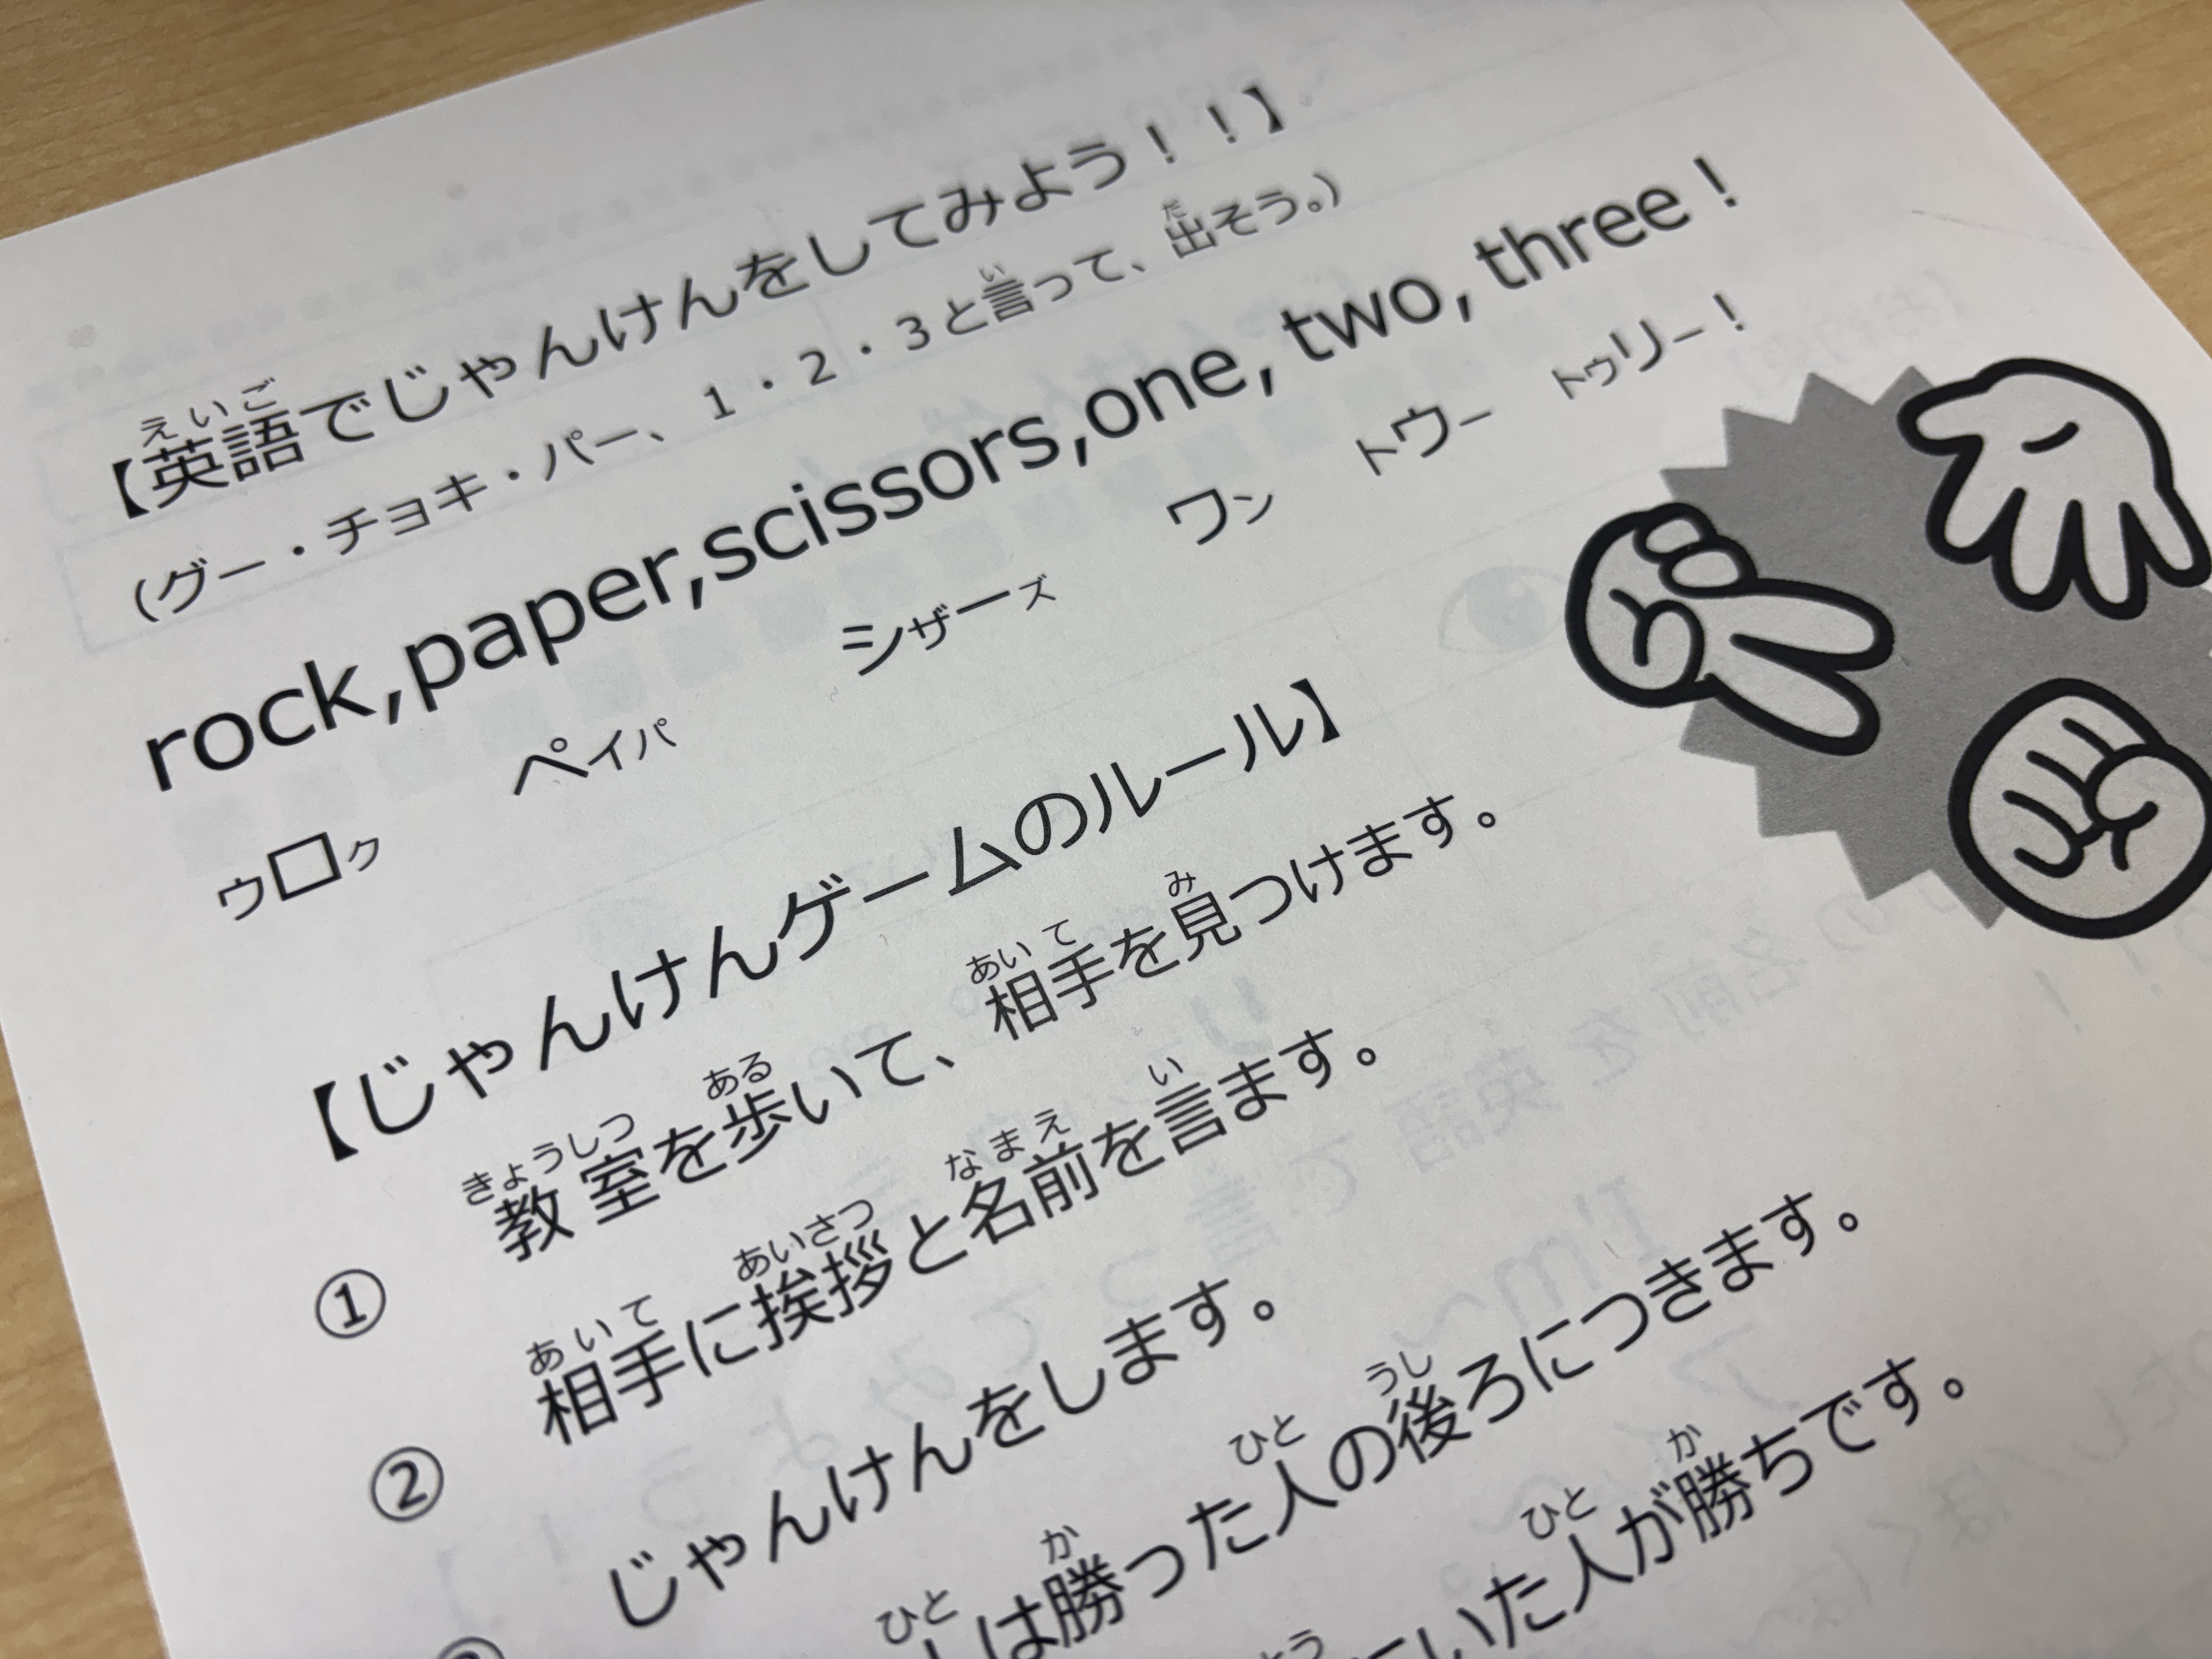 えいご
【英語でじゃんけんをしてみよう！！】
い だ
（グー・チョキ・パー、１・２・３と言って、出そう。）
rock,paper,scissors,one, two, three！
ウロク ペイパ シザーズ ワン トウー トゥリー！
【じゃんけんゲームのルール】
きょうしつ ある あいて み
① 教室を歩いて、相手を見つけます。
あいて あいさつ なまえ い
② 相手に挨拶と名前を言います。
じゃんけんをします。
ひと か ひと うし
は勝った人の後ろにつきます。
ひと か
いた人が勝ちです。